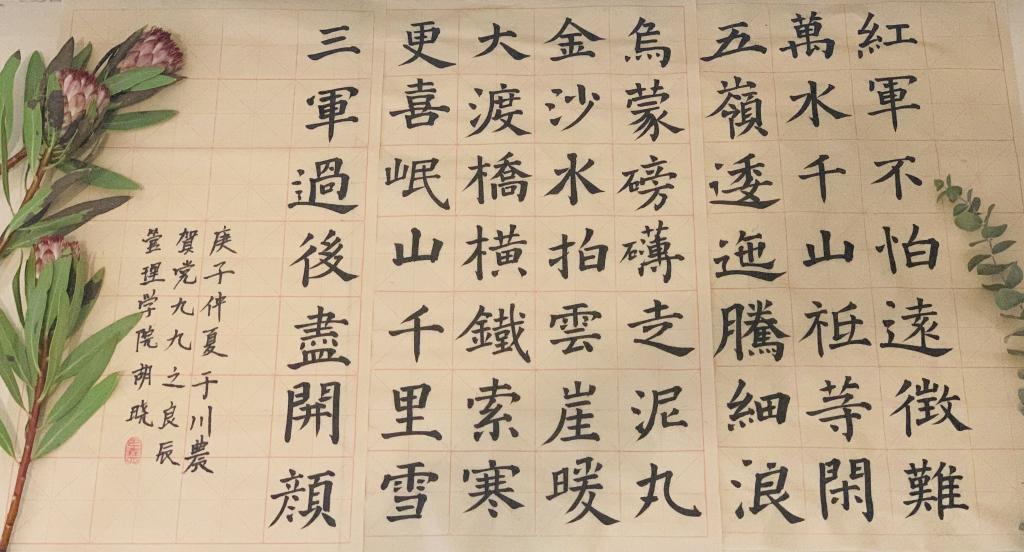 紅軍不怕遠徵難
萬水千山祗等閑
五嶺逶迤騰細浪
烏蒙磅礴走泥丸
金沙水拍雲崖暖
大渡橋橫鐵索寒
更喜岷山千里雪
三軍過後盡開顏
庚子仲夏于川農
賀党九九之良辰
管理学院胡晓